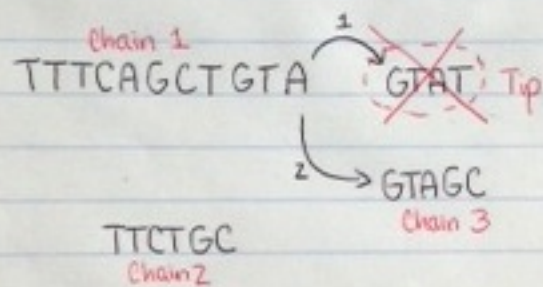 Chain 1
1
TTTCAGCTGTA
GTAT
Tip
2
GTAGC
Chain 3
TTCTGC
Chain 2